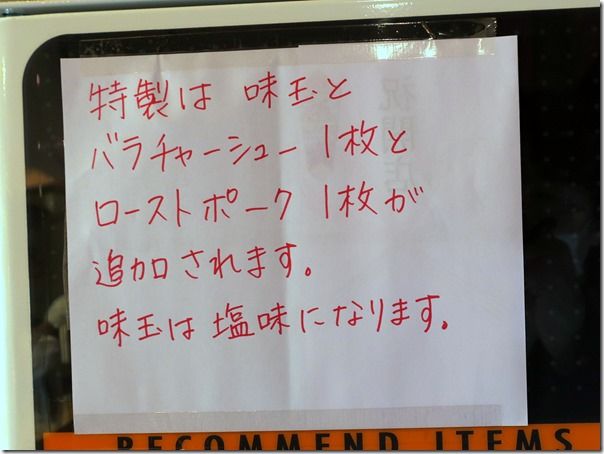 特製は 味玉と
バラチャーシュー 1枚と
ローストポーク 1枚が
追加されます。
味玉は塩味になります。
祝開店
RECOMMEND ITEMS